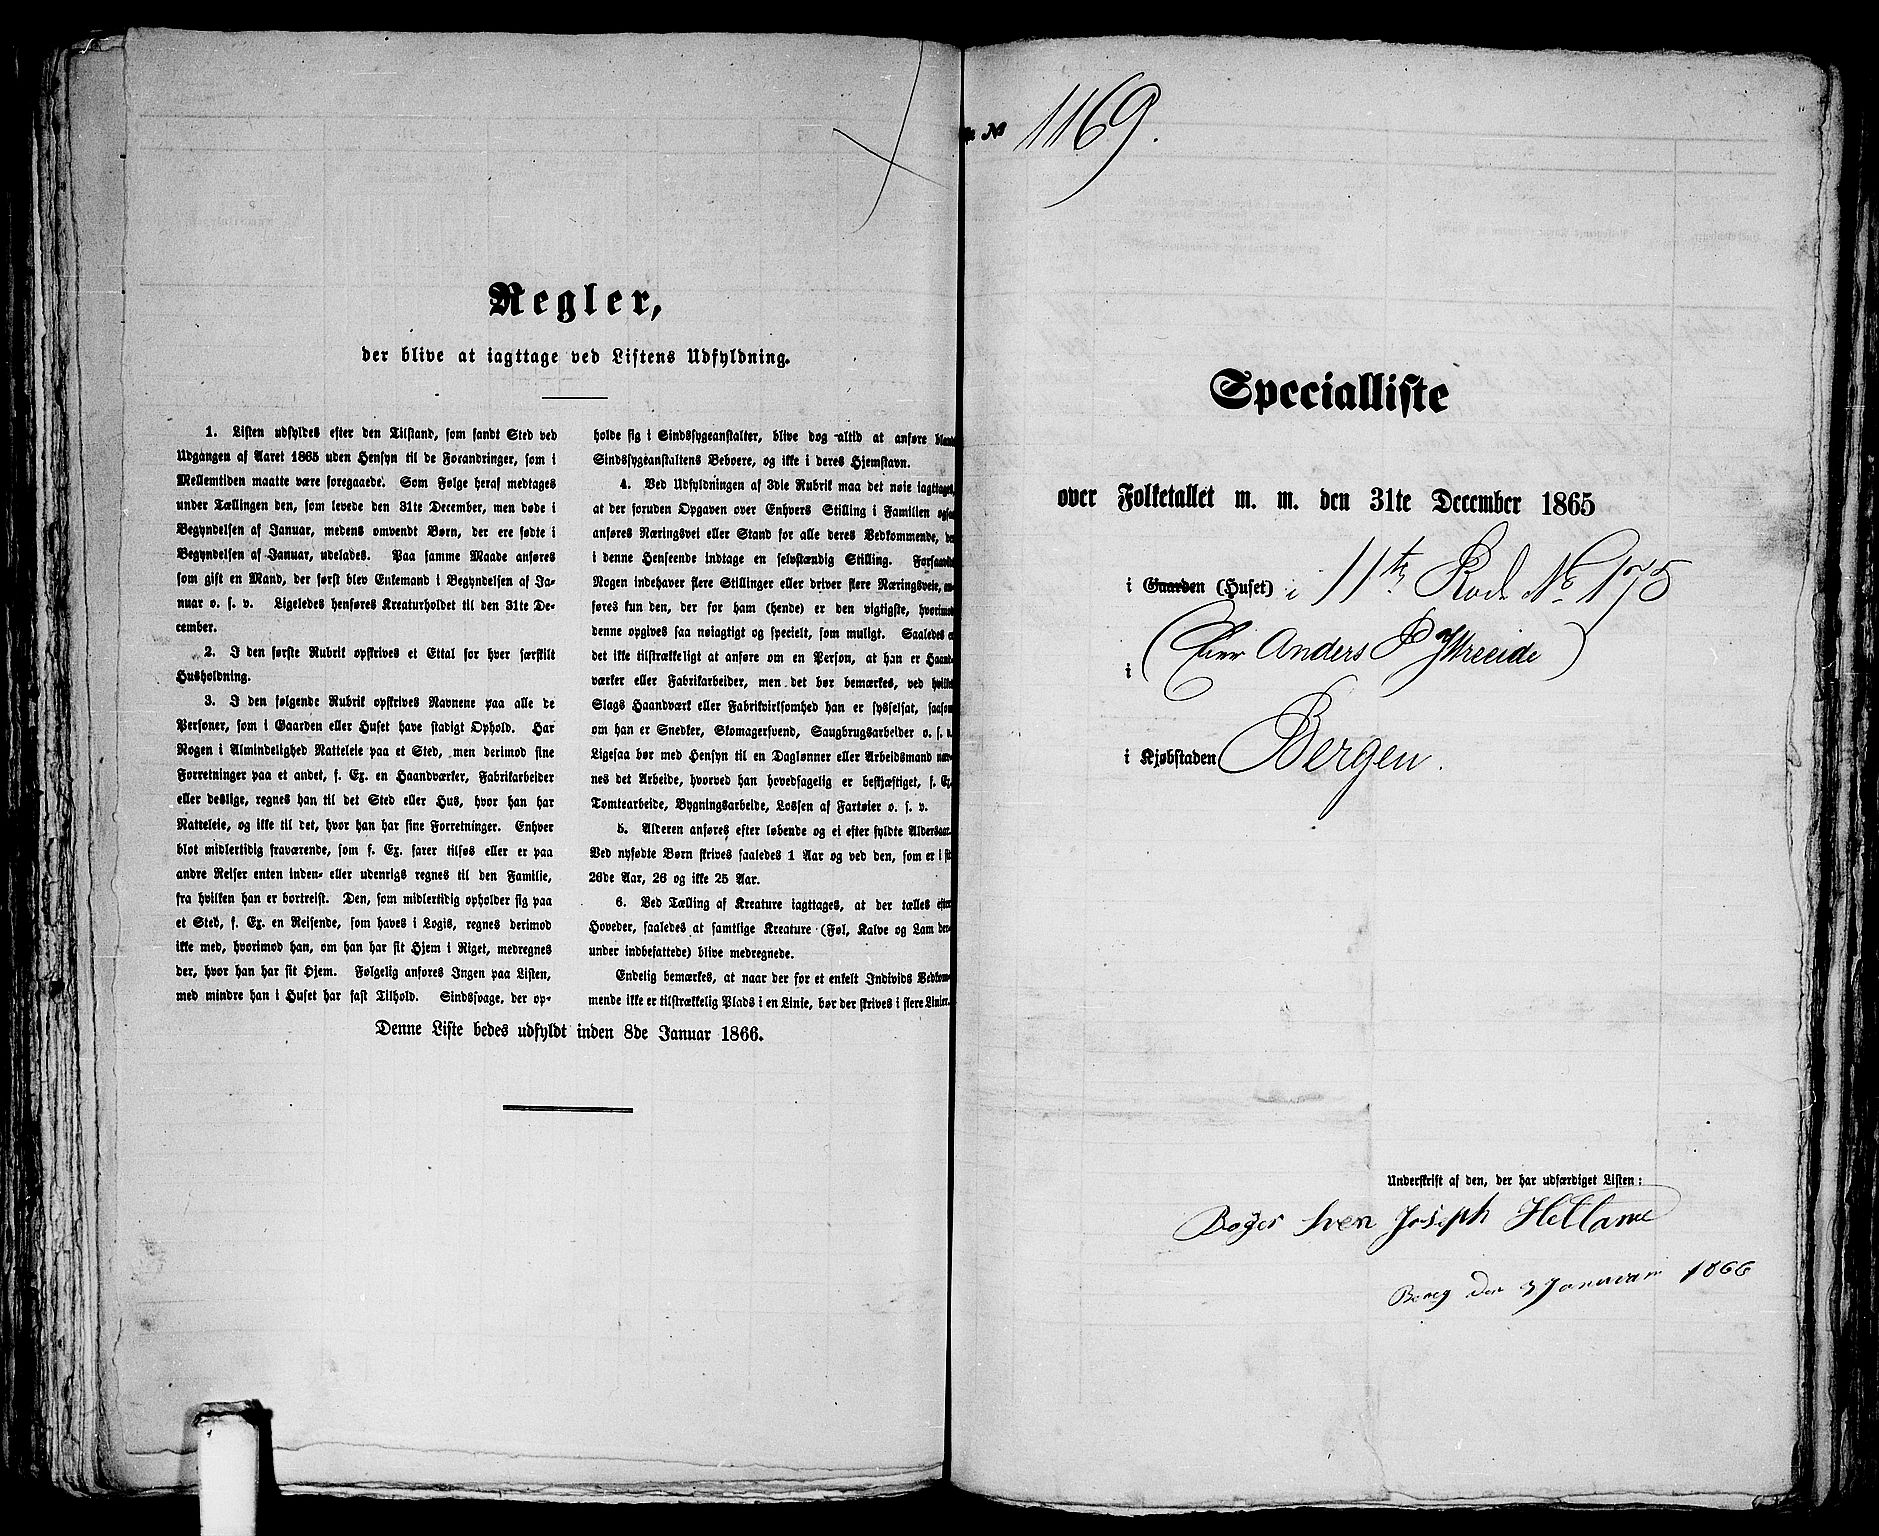 Regler,
der blive at iagttage ved Listens Udfyldning.
1. Listen udfyldes efter den Tilstand, som fandt Sted ved
Udgangen af Aaret 1865 uden Hensyn til de Forandringer, som i
Mellemtiden maatte være foregaaede. Som Følge heraf medtages
under Tællingen den, som levede den 31te December, men døde i
Begyndelsen af Januar, medens omvendt Børn, der ere fødte i
Begyndelsen af Januar, udelades. Paa samme Maade anføres
som gift en Mand, der først blev Enkemand i Begyndelsen af Ja-
nuar o. s. v. Ligeledes henføres Kreaturholdet til den 31te De-
cember.
2. I den første Rubrik opskrives et Ettal for hver særskilt
Husholdning.
3. I den følgende Rubrik opskrives Navnene paa alle de
Personer, som i Gaarden eller Huset have stadigt Ophold. Har
Nogen i Almindelighed Natteleie paa et Sted, men derimod sine
Forretninger paa et andet, f. Ex. en Haandværker, Fabrikarbeider
eller deslige, regnes han til det Sted eller Hus, hvor han har
Natteleie, og ikke til det, hvor han har sine Forretninger. Enhver
blot midlertidig fraværende, som f. Ex. farer tilsøs eller er paa
andre Reiser enten inden- eller udenrigs regnes til den Familie,
fra hvilken han er bortreist. Den, som midlertidig opholder sig paa
et Sted, f. Ex. en Reisende, som haves i Logis, regnes derimod
ikke med, hvorimod han, om han har sit Hjem i Riget, medregnes
der, hvor han har sit Hjem. Følgelig anføres Ingen paa Listen,
med mindre han i Huset har fast Tilhold. Sindssvage, der op-
holde sig i Sindssygeanstalter, blive dog altid at anføre blandt
Sindssygeanstaltens Beboere, og ikke i deres Hjemstavn.
4. Ved Udfyldningen af 3die Rubrik maa det nøie iagttages,
at der foruden Opgaven over Enhvers Stilling i Familien ogsaa
anføres Næringsvei eller Stand for alle deres Vedkommende, der
i denne Henseende indtage en selvstændig Stilling. Forsaavidt
Nogen indehaver flere Stillinger eller driver flere Næringsveie, an-
føres kun den, der for ham (hende) er den vigtigste, hvorimod
denne opgives saa nøiagtigt og specielt, som muligt. Saaledes er
det ikke tilstrækkeligt at anføre om en Person, at han er Haand-
værker eller Fabrikarbeider, men det bør bemærkes, ved hvilket
Slags Haandværk eller Fabrikvirksomhed han er sysselsat, saasom
om han er Snedker, Skomagersvend, Saugbrugsarbeider o. s. v.
Ligesaa bør med Hensyn til en Dagløнner eller Arbeidsmand næv-
nes det Arbeide, hvorved han hovedsagelig er beskjæftiget, f. Ex.
Tomtearbeide, Bygningsarbeide, Lossen af Fartøier o. s. v.
5. Alderen anføres efter løbende og ei efter fyldte Aldersaar.
Ved nyfødte Børn skrives saaledes 1 Aar og ved den, som er i sit
26de Aar, 26 og ikke 25 Aar.
6. Ved Tælling af Kreature iagttages, at der tælles efter
Hoveder, saaledes at samtlige Kreature (Føl, Kalve og Lam der-
under indbefattede) blive medregnede.
Endelig bemærkes, at naar der for et enkelt Individs Vedkom-
mende ikke er tilstrækkelig Plads i en Linie, bør der skrives i flere Linier.
Denne Liste bedes udfyldt inden 8de Januar 1866.
№ 1169.
Specialliste
over Folketallet m. m. den 31te December 1865
i Gaarden (Huset) i 11te Rode No 175
i (Eier Anders P Ytreeide)
i Kjøbstaden Bergen.
Underskrift af den, der har udfærdiget Listen:
Bager Sven Joseph Helland
den 3 Januar 1866